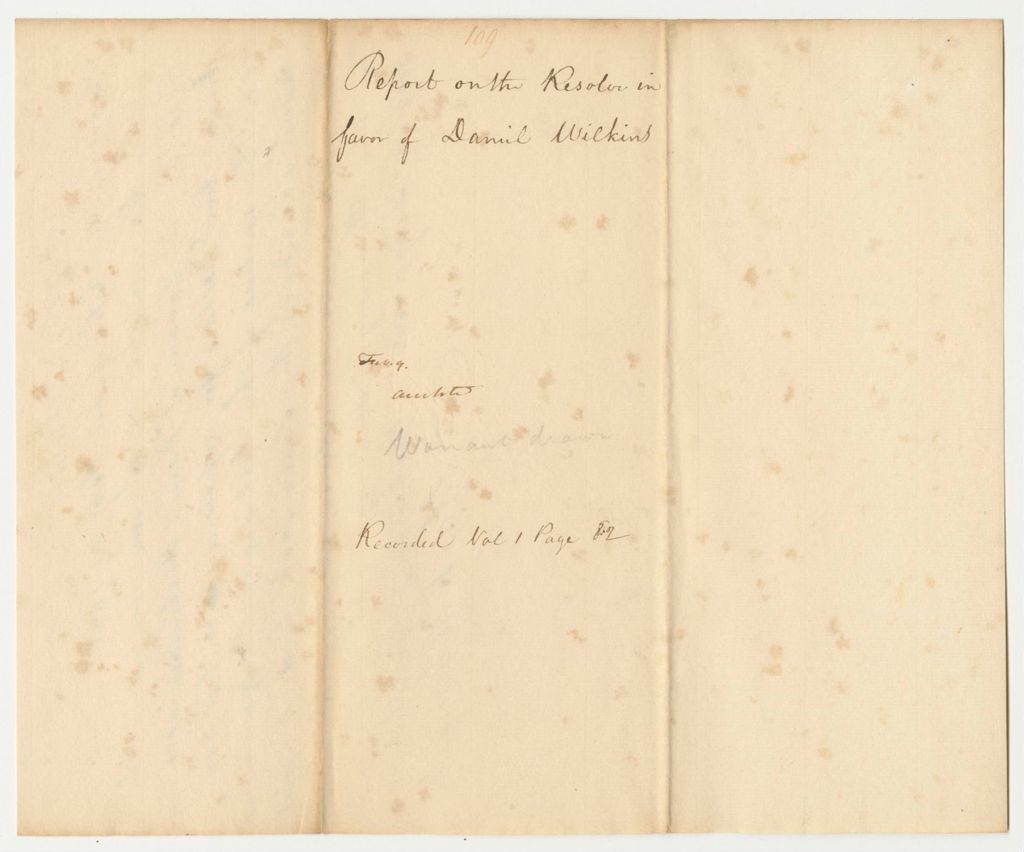 109
Report on the Resolve in
favor of Daniel Wilkins
Warrant drawn
Recorded Vol 1 Page